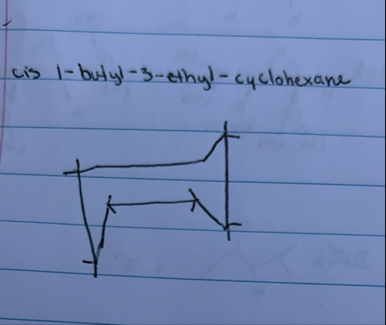 cis 1-butyl-3-ethyl-cyclohexane